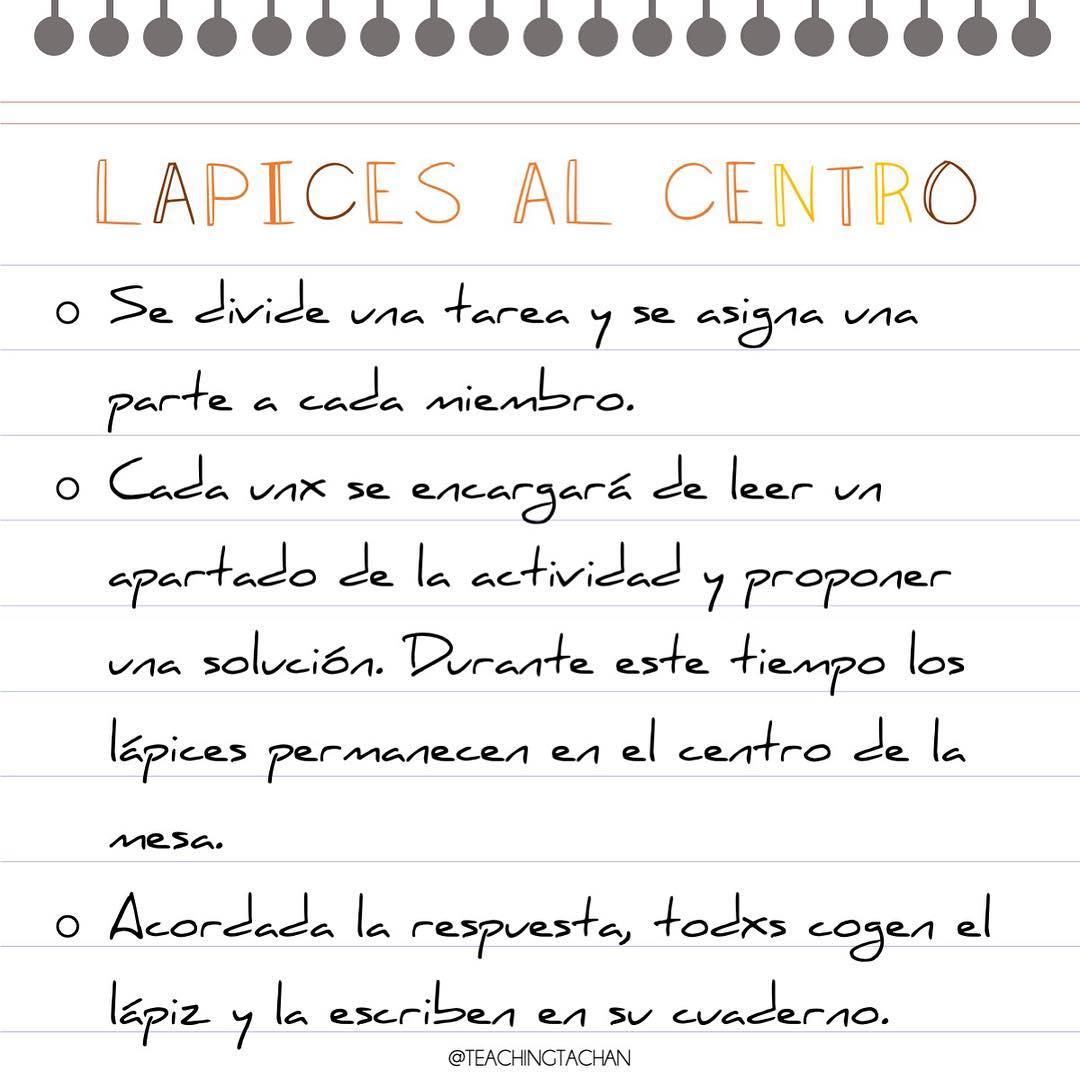 LAPICES AL CENTRO
o Se divide una tarea y se asigna una
parte a cada miembro.
o Cada unx se encargará de leer un
apartado de la actividad y proponer
una solución. Durante este tiempo los
lápices permanecen en el centro de la
mesa.
o Acordada la respuesta, todxs cogen el
lápiz y la escriben en su cuaderno.
@TEACHINGTACHAN